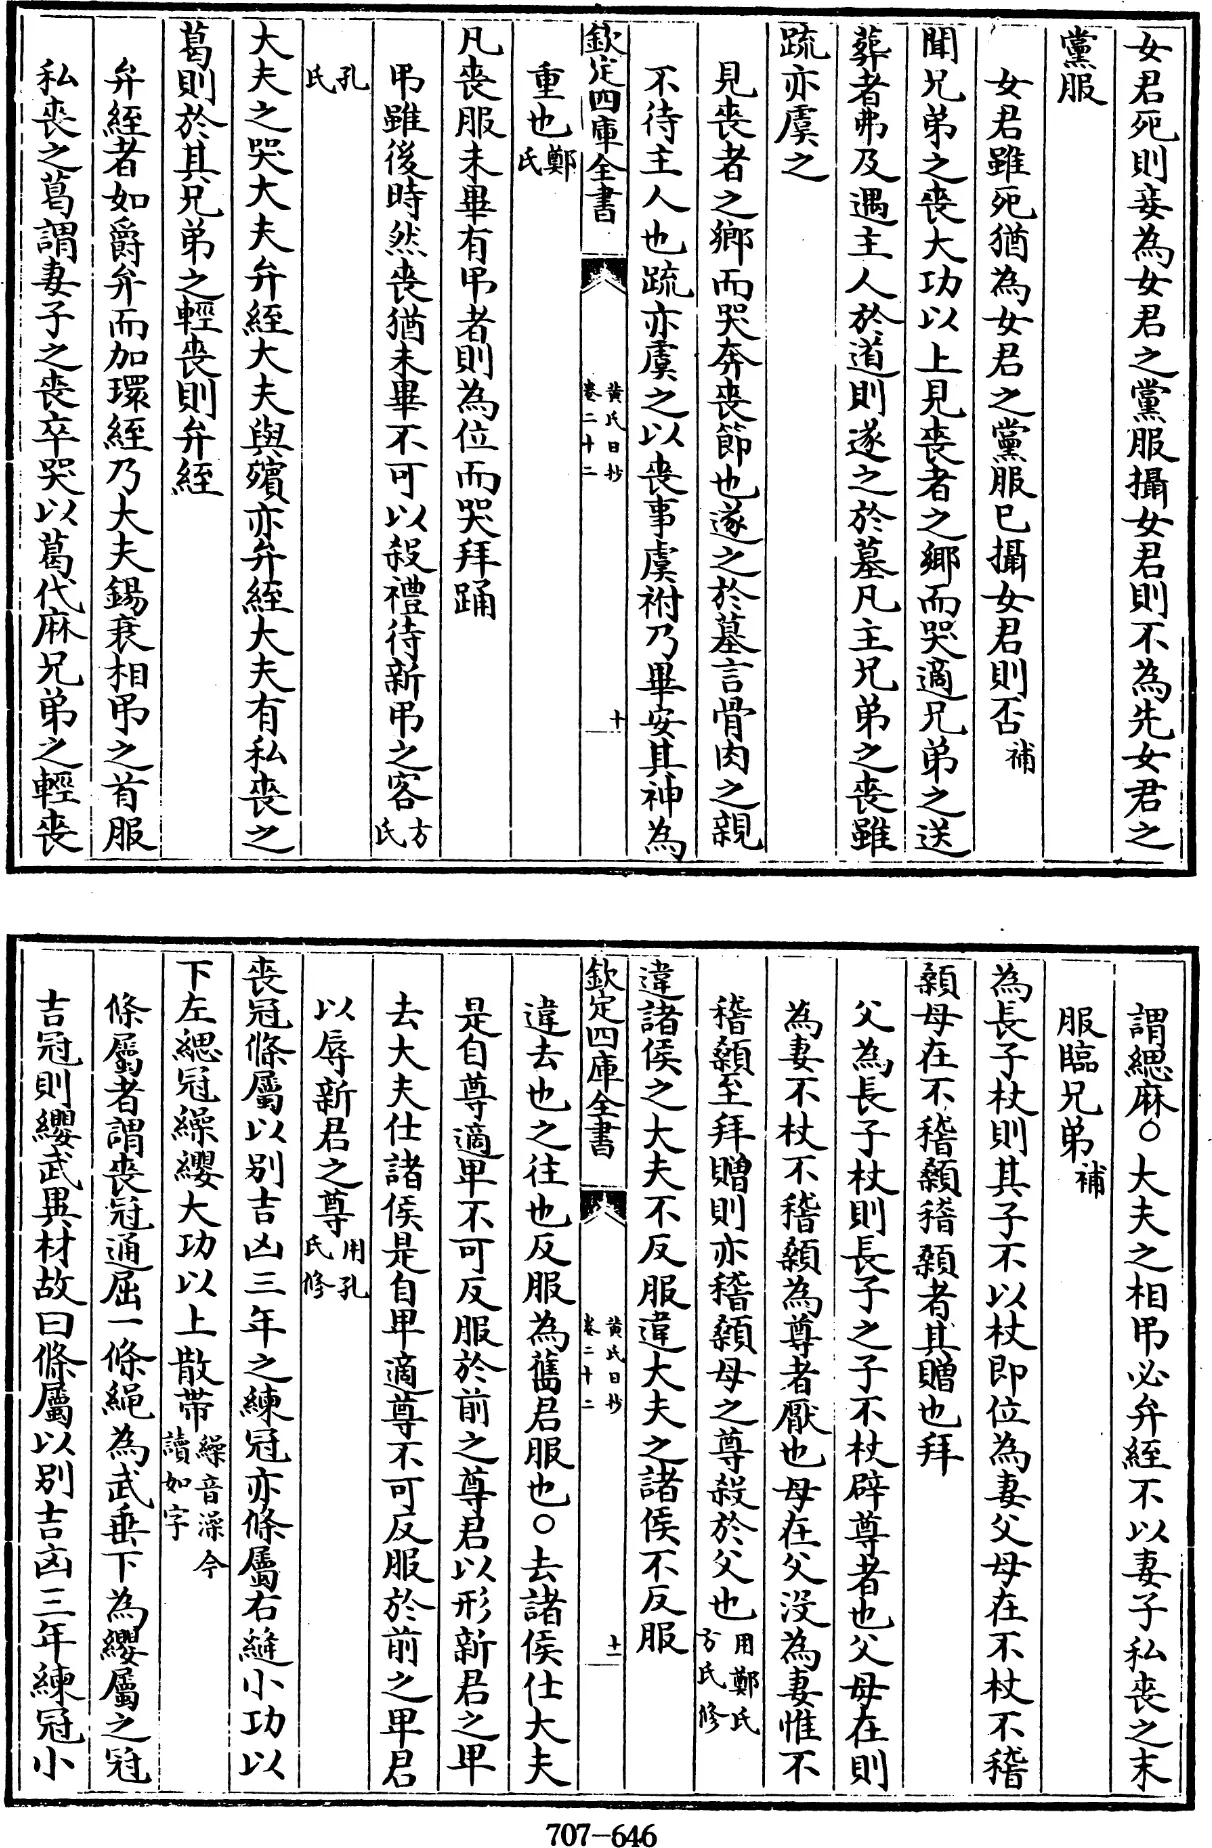 女君死則妾為女君之黨服攝女君則不為先女君之
黨服
女君雖死猶為女君之黨服已攝女君則否補
聞兄弟之喪大功以上見喪者之鄉而哭適兄弟之送
葬者弗及遇主人於道則遂之於墓凡主兄弟之喪雖
疏亦虞之
見喪者之鄉而哭奔喪節也遂之於墓言骨肉之親
不待主人也疏亦虞之以喪事虞祔乃畢安其神為
欽定四庫全書
黃氏日抄
卷二十二
十
重也鄭氏
凡喪服未畢有弔者則為位而哭拜踊
弔雖後時然喪猶未畢不可以殺禮待新弔之客方氏
孔氏
大夫之哭大夫弁絰大夫與殯亦弁絰大夫有私喪之
葛則於其兄弟之輕喪則弁絰
弁絰者如爵弁而加環絰乃大夫錫衰相弔之首服
私喪之葛謂妻子之喪卒哭以葛代麻兄弟之輕喪
謂緦麻○大夫之相弔必弁絰不以妻子私喪之末
服臨兄弟補
為長子杖則其子不以杖即位為妻父母在不杖不稽
顙母在不稽顙稽顙者其贈也拜
父為長子杖則長子之子不杖辟尊者也父母在則
為妻不杖不稽顙為尊者厭也母在父沒為妻惟不
稽顙至拜贈則亦稽顙母之尊殺於父也用鄭氏方氏修
違諸侯之大夫不反服違大夫之諸侯不反服
欽定四庫全書
黃氏日抄
卷二十二
十一
違去也之往也反服為舊君服也○去諸侯仕大夫
是自尊適卑不可反服於前之尊君以形新君之卑
去大夫仕諸侯是自卑適尊不可反服於前之卑君
以辱新君之尊用孔氏修
喪冠條屬以別吉凶三年之練冠亦條屬右縫小功以
下左緦冠繰纓大功以上散帶繰音澡今讀如字
條屬者謂喪冠通屈一條繩為武垂下為纓屬之冠
吉冠則纓武異材故曰條屬以別吉凶三年練冠小
707-646